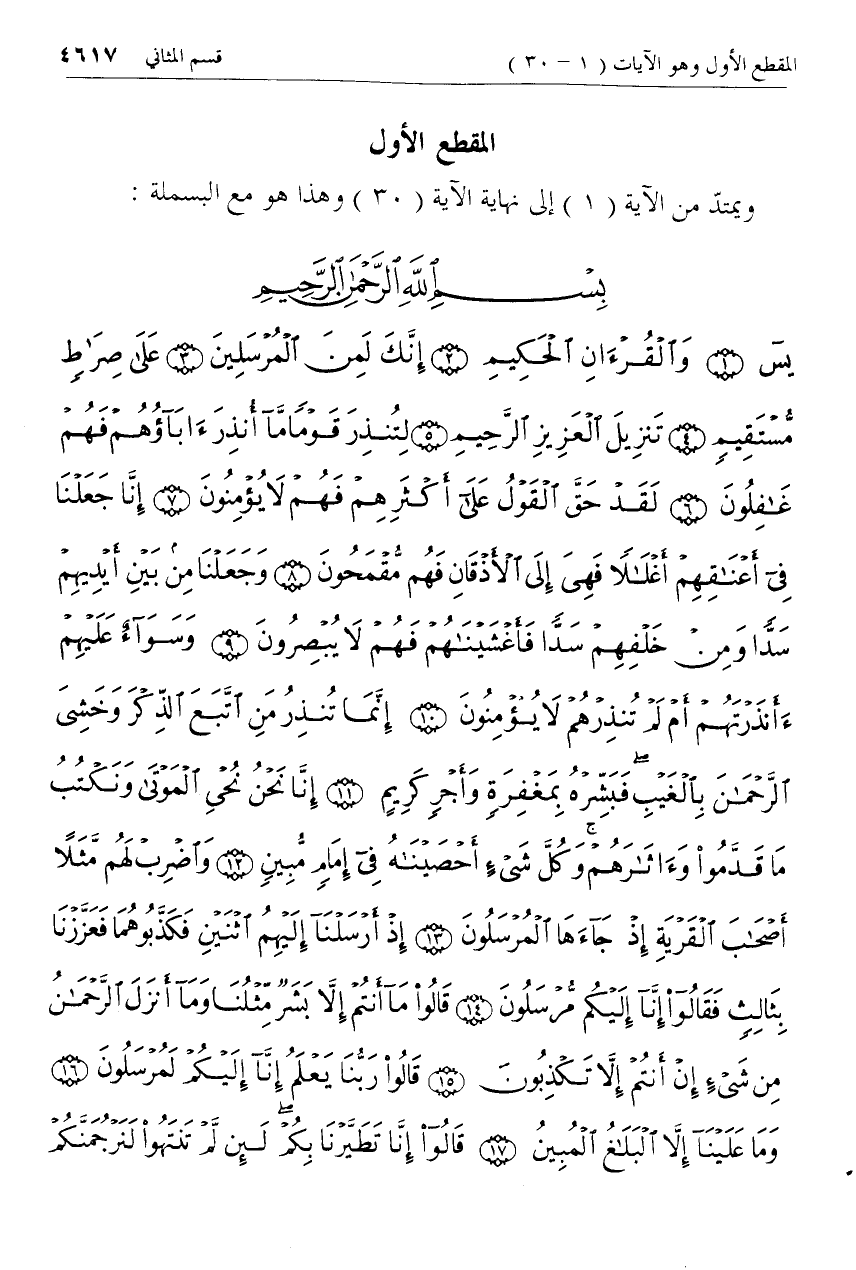 المقطع الأول وهو الآيات ( ١ - ٣٠ ) قسم المثاني ٤٦١٧
المقطع الأول
ويمتدّ من الآية ( ١ ) إلى نهاية الآية ( ٣٠ ) وهذا هو مع البسملة :
بِسْمِ ٱللَّهِ ٱلرَّحْمَٰنِ ٱلرَّحِيمِ
يسٓ ۝١ وَٱلْقُرْءَانِ ٱلْحَكِيمِ ۝٢ إِنَّكَ لَمِنَ ٱلْمُرْسَلِينَ ۝٣ عَلَىٰ صِرَٰطٍ
مُّسْتَقِيمٍ ۝٤ تَنزِيلَ ٱلْعَزِيزِ ٱلرَّحِيمِ ۝٥ لِتُنذِرَ قَوْمًا مَّآ أُنذِرَ ءَابَآؤُهُمْ فَهُمْ
غَٰفِلُونَ ۝٦ لَقَدْ حَقَّ ٱلْقَوْلُ عَلَىٰٓ أَكْثَرِهِمْ فَهُمْ لَا يُؤْمِنُونَ ۝٧ إِنَّا جَعَلْنَا
فِىٓ أَعْنَٰقِهِمْ أَغْلَٰلًا فَهِىَ إِلَى ٱلْأَذْقَانِ فَهُم مُّقْمَحُونَ ۝٨ وَجَعَلْنَا مِنۢ بَيْنِ أَيْدِيهِمْ
سَدًّا وَمِنْ خَلْفِهِمْ سَدًّا فَأَغْشَيْنَٰهُمْ فَهُمْ لَا يُبْصِرُونَ ۝٩ وَسَوَآءٌ عَلَيْهِمْ
ءَأَنذَرْتَهُمْ أَمْ لَمْ تُنذِرْهُمْ لَا يُؤْمِنُونَ ۝١٠ إِنَّمَا تُنذِرُ مَنِ ٱتَّبَعَ ٱلذِّكْرَ وَخَشِىَ
ٱلرَّحْمَٰنَ بِٱلْغَيْبِ ۖ فَبَشِّرْهُ بِمَغْفِرَةٍ وَأَجْرٍ كَرِيمٍ ۝١١ إِنَّا نَحْنُ نُحْىِ ٱلْمَوْتَىٰ وَنَكْتُبُ
مَا قَدَّمُوا۟ وَءَاثَٰرَهُمْ ۚ وَكُلَّ شَىْءٍ أَحْصَيْنَٰهُ فِىٓ إِمَامٍ مُّبِينٍ ۝١٢ وَٱضْرِبْ لَهُم مَّثَلًا
أَصْحَٰبَ ٱلْقَرْيَةِ إِذْ جَآءَهَا ٱلْمُرْسَلُونَ ۝١٣ إِذْ أَرْسَلْنَآ إِلَيْهِمُ ٱثْنَيْنِ فَكَذَّبُوهُمَا فَعَزَّزْنَا
بِثَالِثٍ فَقَالُوٓا۟ إِنَّآ إِلَيْكُم مُّرْسَلُونَ ۝١٤ قَالُوا۟ مَآ أَنتُمْ إِلَّا بَشَرٌ مِّثْلُنَا وَمَآ أَنزَلَ ٱلرَّحْمَٰنُ
مِن شَىْءٍ إِنْ أَنتُمْ إِلَّا تَكْذِبُونَ ۝١٥ قَالُوا۟ رَبُّنَا يَعْلَمُ إِنَّآ إِلَيْكُمْ لَمُرْسَلُونَ ۝١٦
وَمَا عَلَيْنَآ إِلَّا ٱلْبَلَٰغُ ٱلْمُبِينُ ۝١٧ قَالُوٓا۟ إِنَّا تَطَيَّرْنَا بِكُمْ ۖ لَئِن لَّمْ تَنتَهُوا۟ لَنَرْجُمَنَّكُمْ